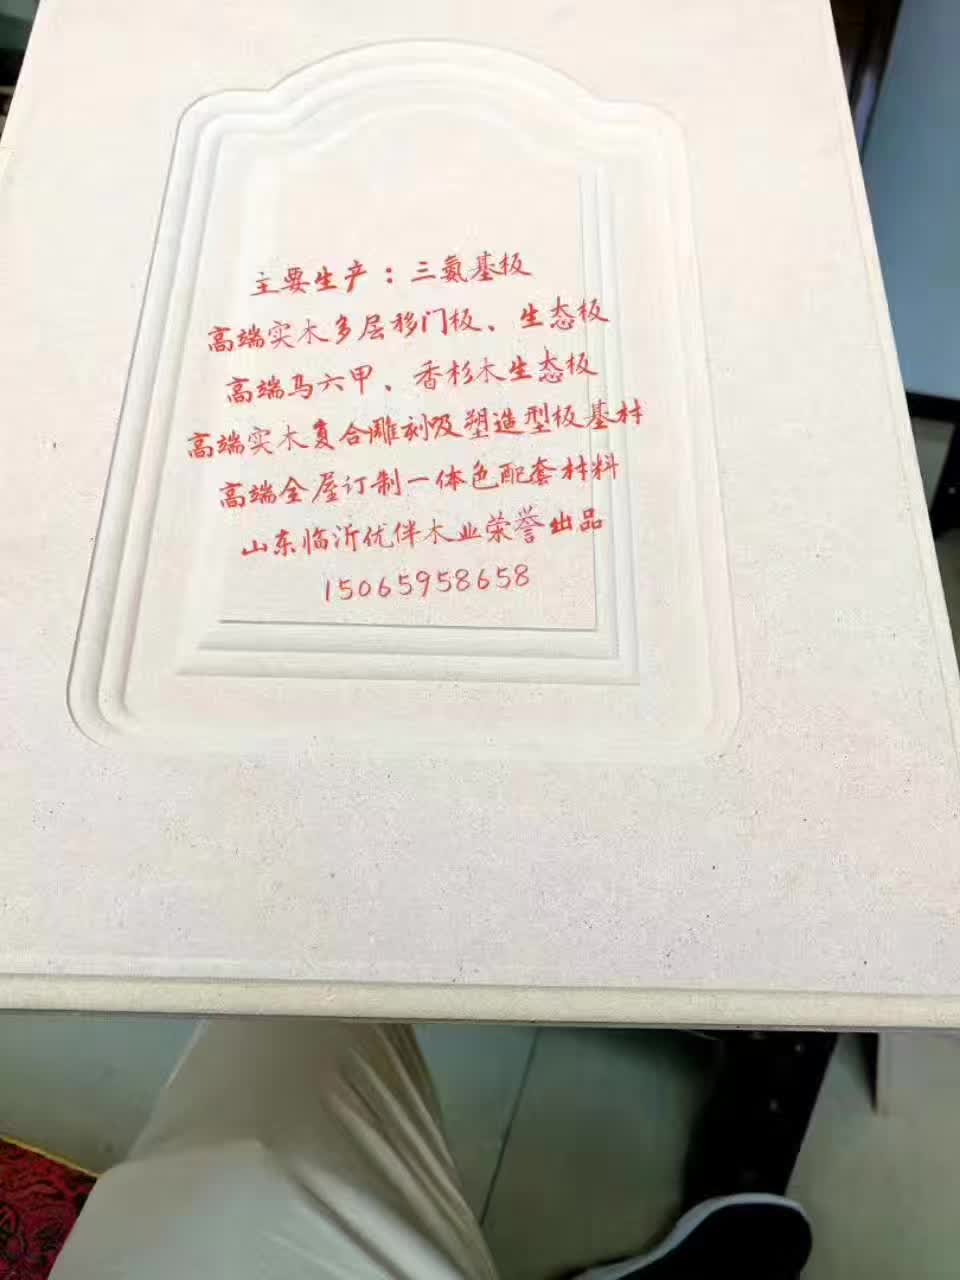 主要生产：三氨基板
高端实木多层移门板、生态板
高端马六甲、香杉木生态板
高端实木复合雕刻吸塑造型板基材
高端全屋订制一体色配套材料
山东临沂优伴木业荣誉出品
15065958658